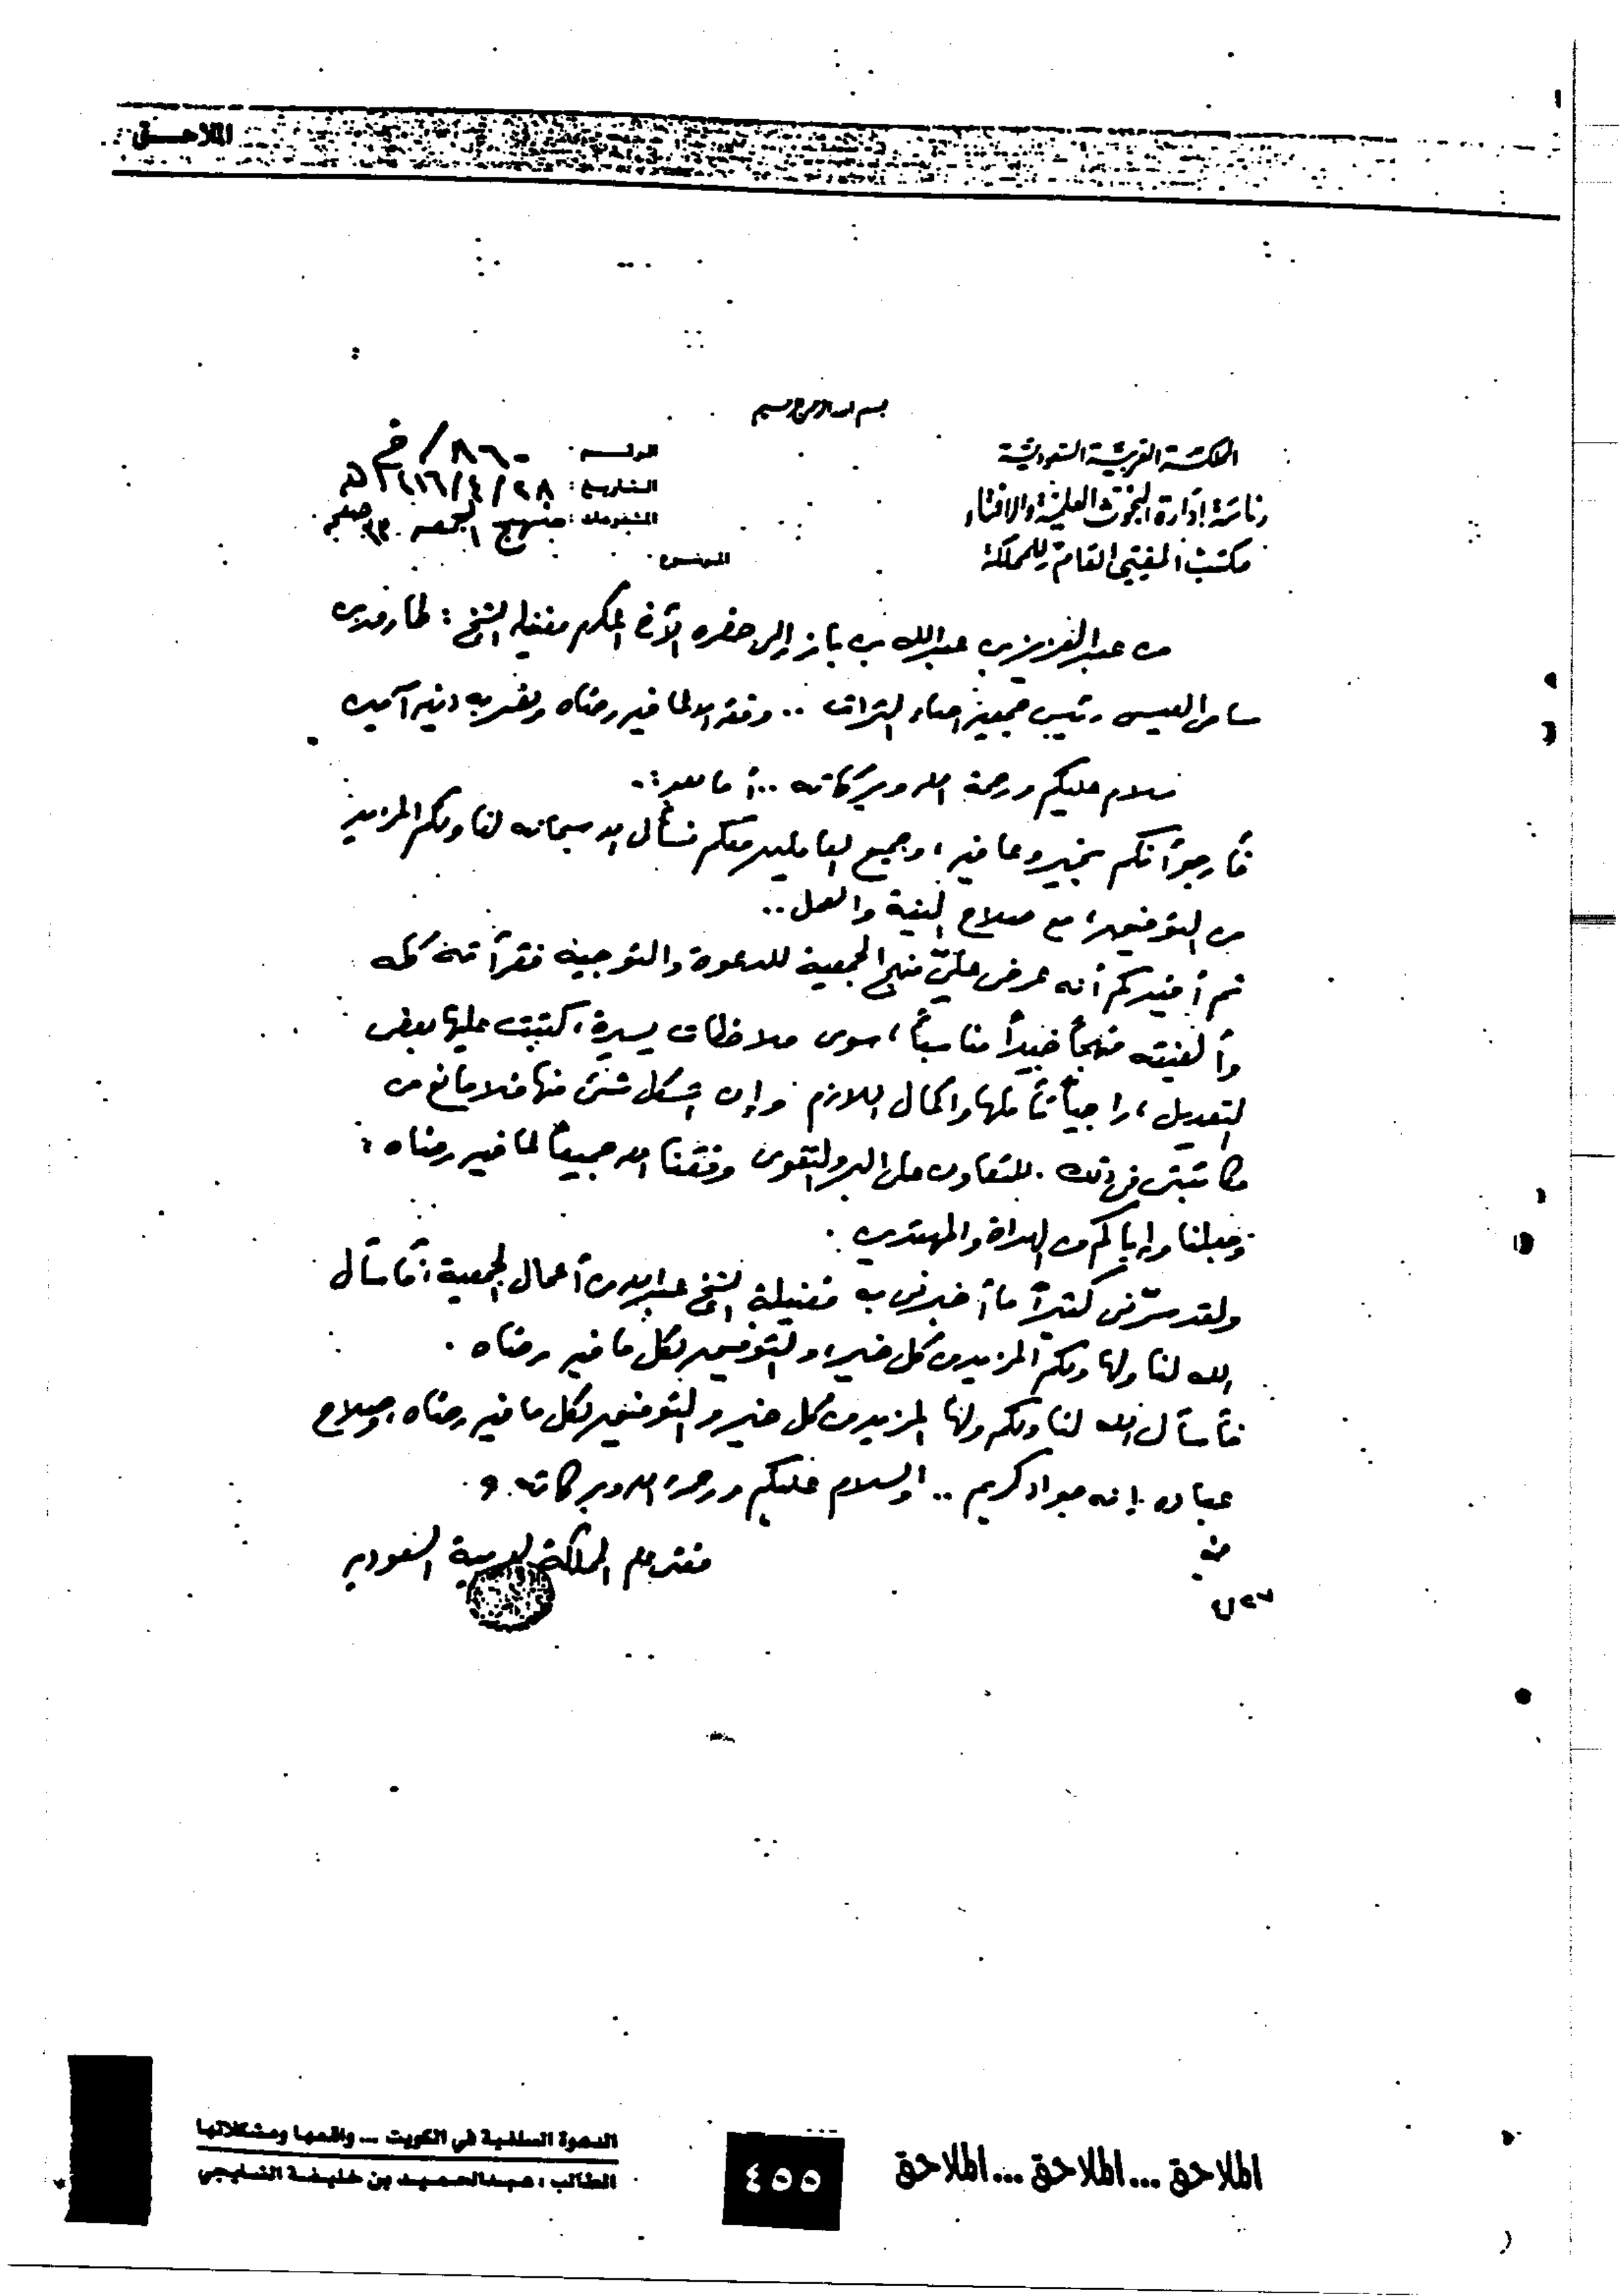 الملاحق
بسم الله الرحمن الرحيم
المملكة العربية السعودية
رئاسة إدارة البحوث العلمية والافتاء
مكتب المفتي العام للمملكة
الرقم: ٨٦٠/خ
التاريخ: ٢٨/٤/١٤١٦هـ
المشفوعات: منهج الجمعية
الموضوع
من عبدالعزيز بن عبدالله بن باز إلى حضرة الأخ المكرم فضيلة الشيخ: طارق بن
سامي العيسى رئيس جمعية احياء التراث .. وفقه الله لما فيه رضاه ونصر به دينه آمين
سلام عليكم ورحمة الله وبركاته ..أما بعد:
فأرجو أنكم بخير وعافية، وجميع العاملين معكم نسأل الله سبحانه لنا ولكم المزيد
من التوفيق، مع صلاح النية والعمل..
ثم أفيدكم أنه عرض عليّ منهج الجمعية للدعوة والتوجيه فقرأته كله
وألفيته منهجاً جيداً مناسباً، سوى ملاحظات يسيرة، كتبت عليها بعض
التعديل، راجياً تأملها واكمال اللازم وإن اشكل شئ منها فلا مانع من
مكاتبتي في ذلك. للتعاون على البر والتقوى وفقنا الله جميعاً لما فيه رضاه
وجعلنا وإياكم من الهداة والمهتدين.
ولقد سرّني كثيراً ما أخبرني به فضيلة الشيخ عبدالله من أعمال الجمعية، فأسأل
الله لنا ولها ولكم المزيد من كل خير، والتوفيق لكل ما فيه رضاه.
فأسأل الله لنا ولكم ولها المزيد من كل خير والتوفيق لكل ما فيه رضاه، وصلاح
عباده إنه جواد كريم .. والسلام عليكم ورحمة الله وبركاته.
مفتي عام المملكة العربية السعودية
الملاحق ... الملاحق ... الملاحق
٤٥٥
الدعوة السلفية في الكويت ... واقعها ومشكلاتها
الطالب: عبدالحميد بن خليفة الشايجي